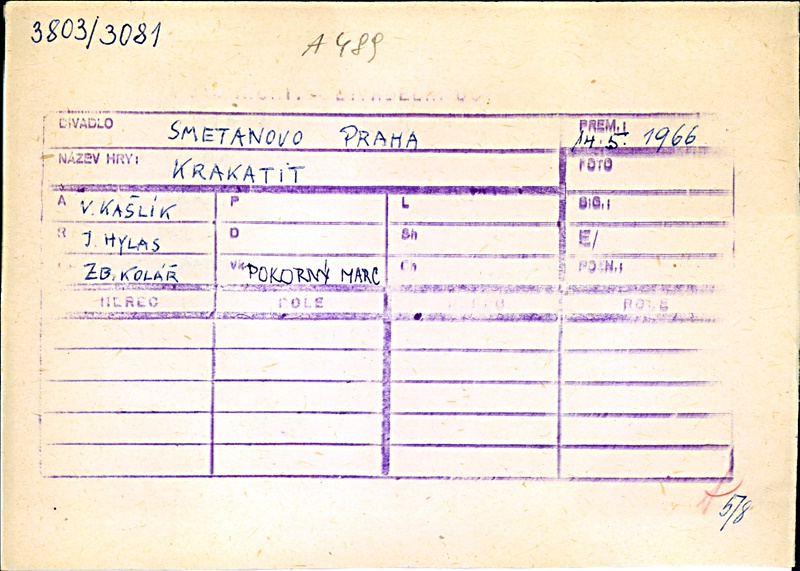 3803/3081
A 489
DIVADLO SMETANOVO PRAHA PREM.: 14.5. 1966
NÁZEV HRY: KRAKATIT FOTO
A V. KAŠLÍK P L SIG.:
R J. HYLAS D Sh E/
ZB. KOLÁŘ POKORNÝ MARC POZN.:
HEREC ROLE ROLE
5/8